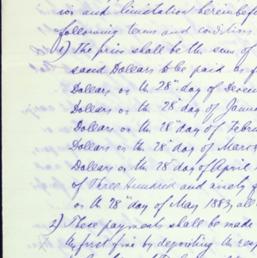 ion and limitation hereinbefo
following terms and condition
1) The price shall be the sum of
sand Dollars to be paid as f
Dollars on the 28" day of Decem
Dollars on the 28" day of Janua
Dollars on the 28" day of Febru
Dollars on the 28" day of March
Dollars on the 28" day of April
of Three hundred and ninety f
on the 28" day of May 1883, all
2) These payments shall be made
the first five by depositing the resp